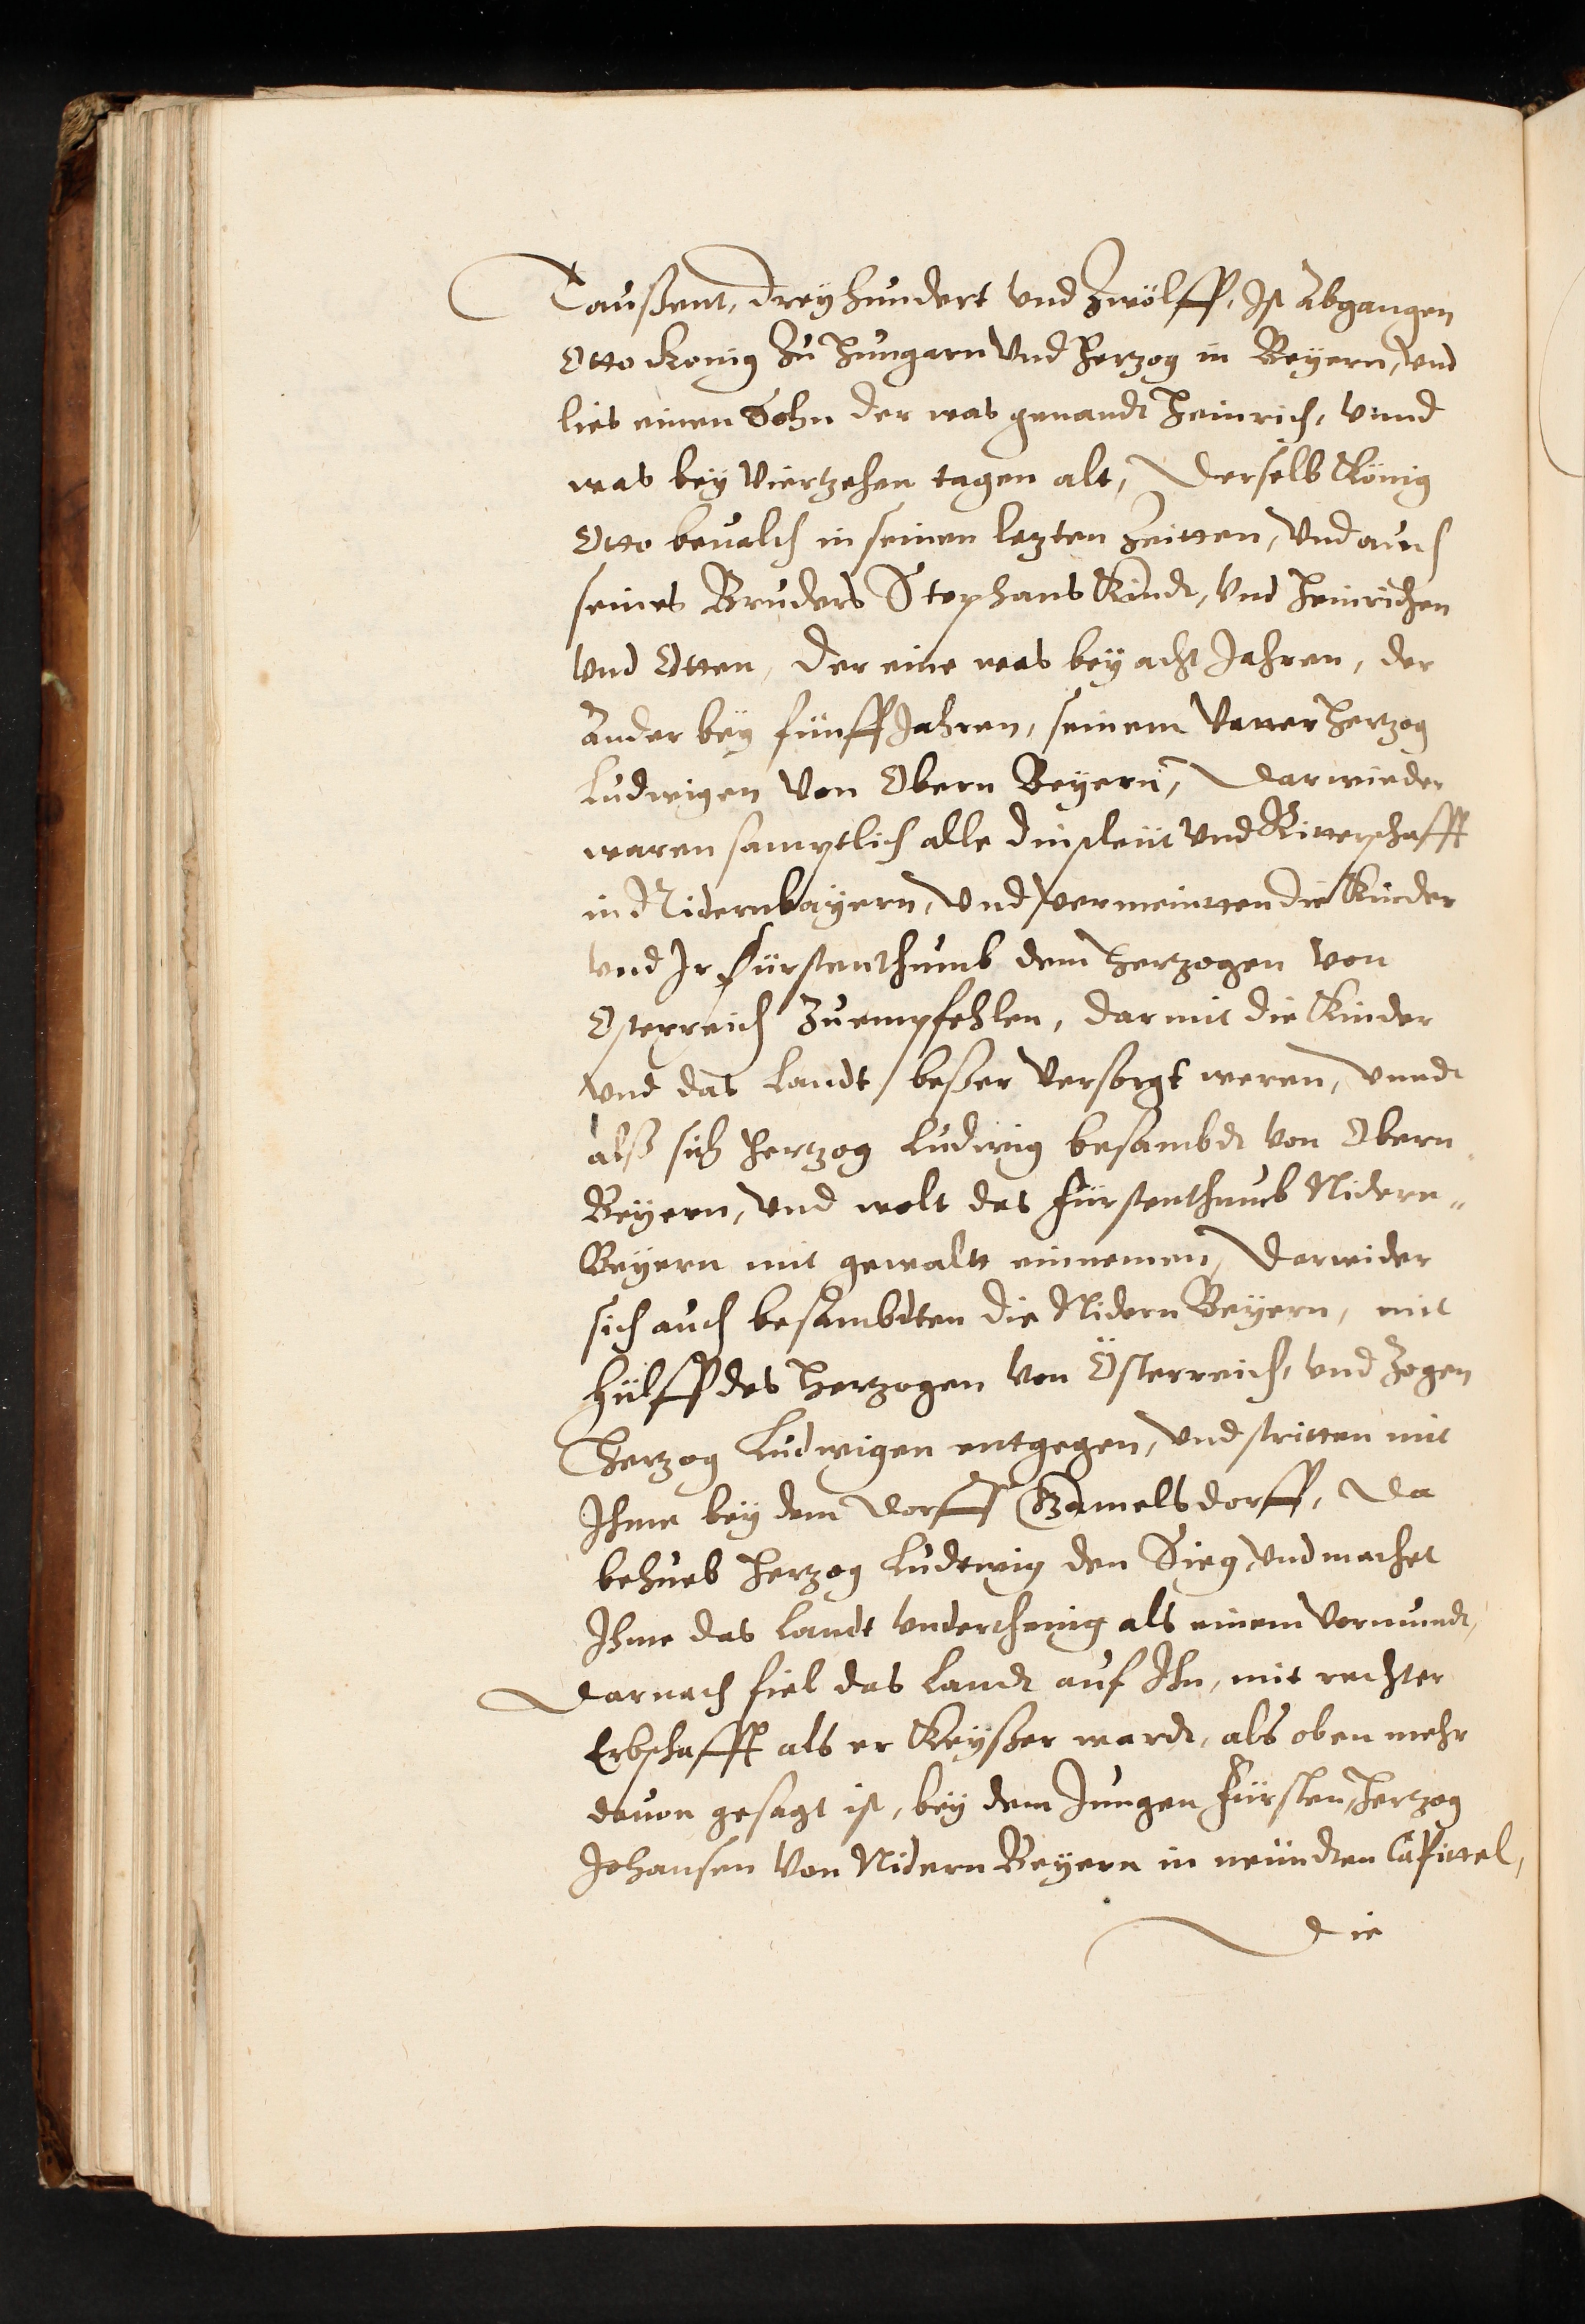 Taußent, dreyhundert vnd Zwölff, Ist abgangen
Otto König Zu Hungarn vnd Hertzog in Beyern, vnd
lies einen Sohn der was genandt Heinrich, vnnd
was bey Viertzehen tagen alt, Derselb König
Otto beualch in seinen letzten Zeitten, vnd auch
seines Bruders Stephans Kindt, vnd Heinrichen
vnd Otten, der eine was bey acht Jahren, der
ander bey fünff Jahren, seinem Vetter Hertzog
Ludwigen von Obern Beyern, Darwieder
waren samptlich alle dinstleut vnd Ritterschafft
in Nidernbayern, vnd vermeintten die Kinder
vnd Ir fürstenthumb dem Hertzogen von
Osterreich Zu empfehlen, darmit die Kinder
vnd das Landt beßer versorgt weren, vnndt
alß sich Hertzog Ludwig besambdt von Obern
Beyern, vnd wolt das fürstenthumb Nidern„
Beyern mit gewalt einnemen, Darwider
sich auch besambdten die Nidern Beyern, mit
hülff des Hertzogen von Österreich, vnd Zogen
Hertzog Ludwigen entgegen, vnd stritten mit
Ihme bey dem Dorff Gamelsdorff, Da
behueb Hertzog Ludtwig den Sieg, vnd machet
Ihme das Landt vnderthenig als einem Vormundt,
Darnach fiel das Landt auf Ihn, mit rechter
Erbschafft als er Keyßer wardt, als oben mehr
dauon gesagt ist, bey dem Jungen Fürsten, Hertzog
Johansen von Nidern Beyern in neundten Capittel,
Die